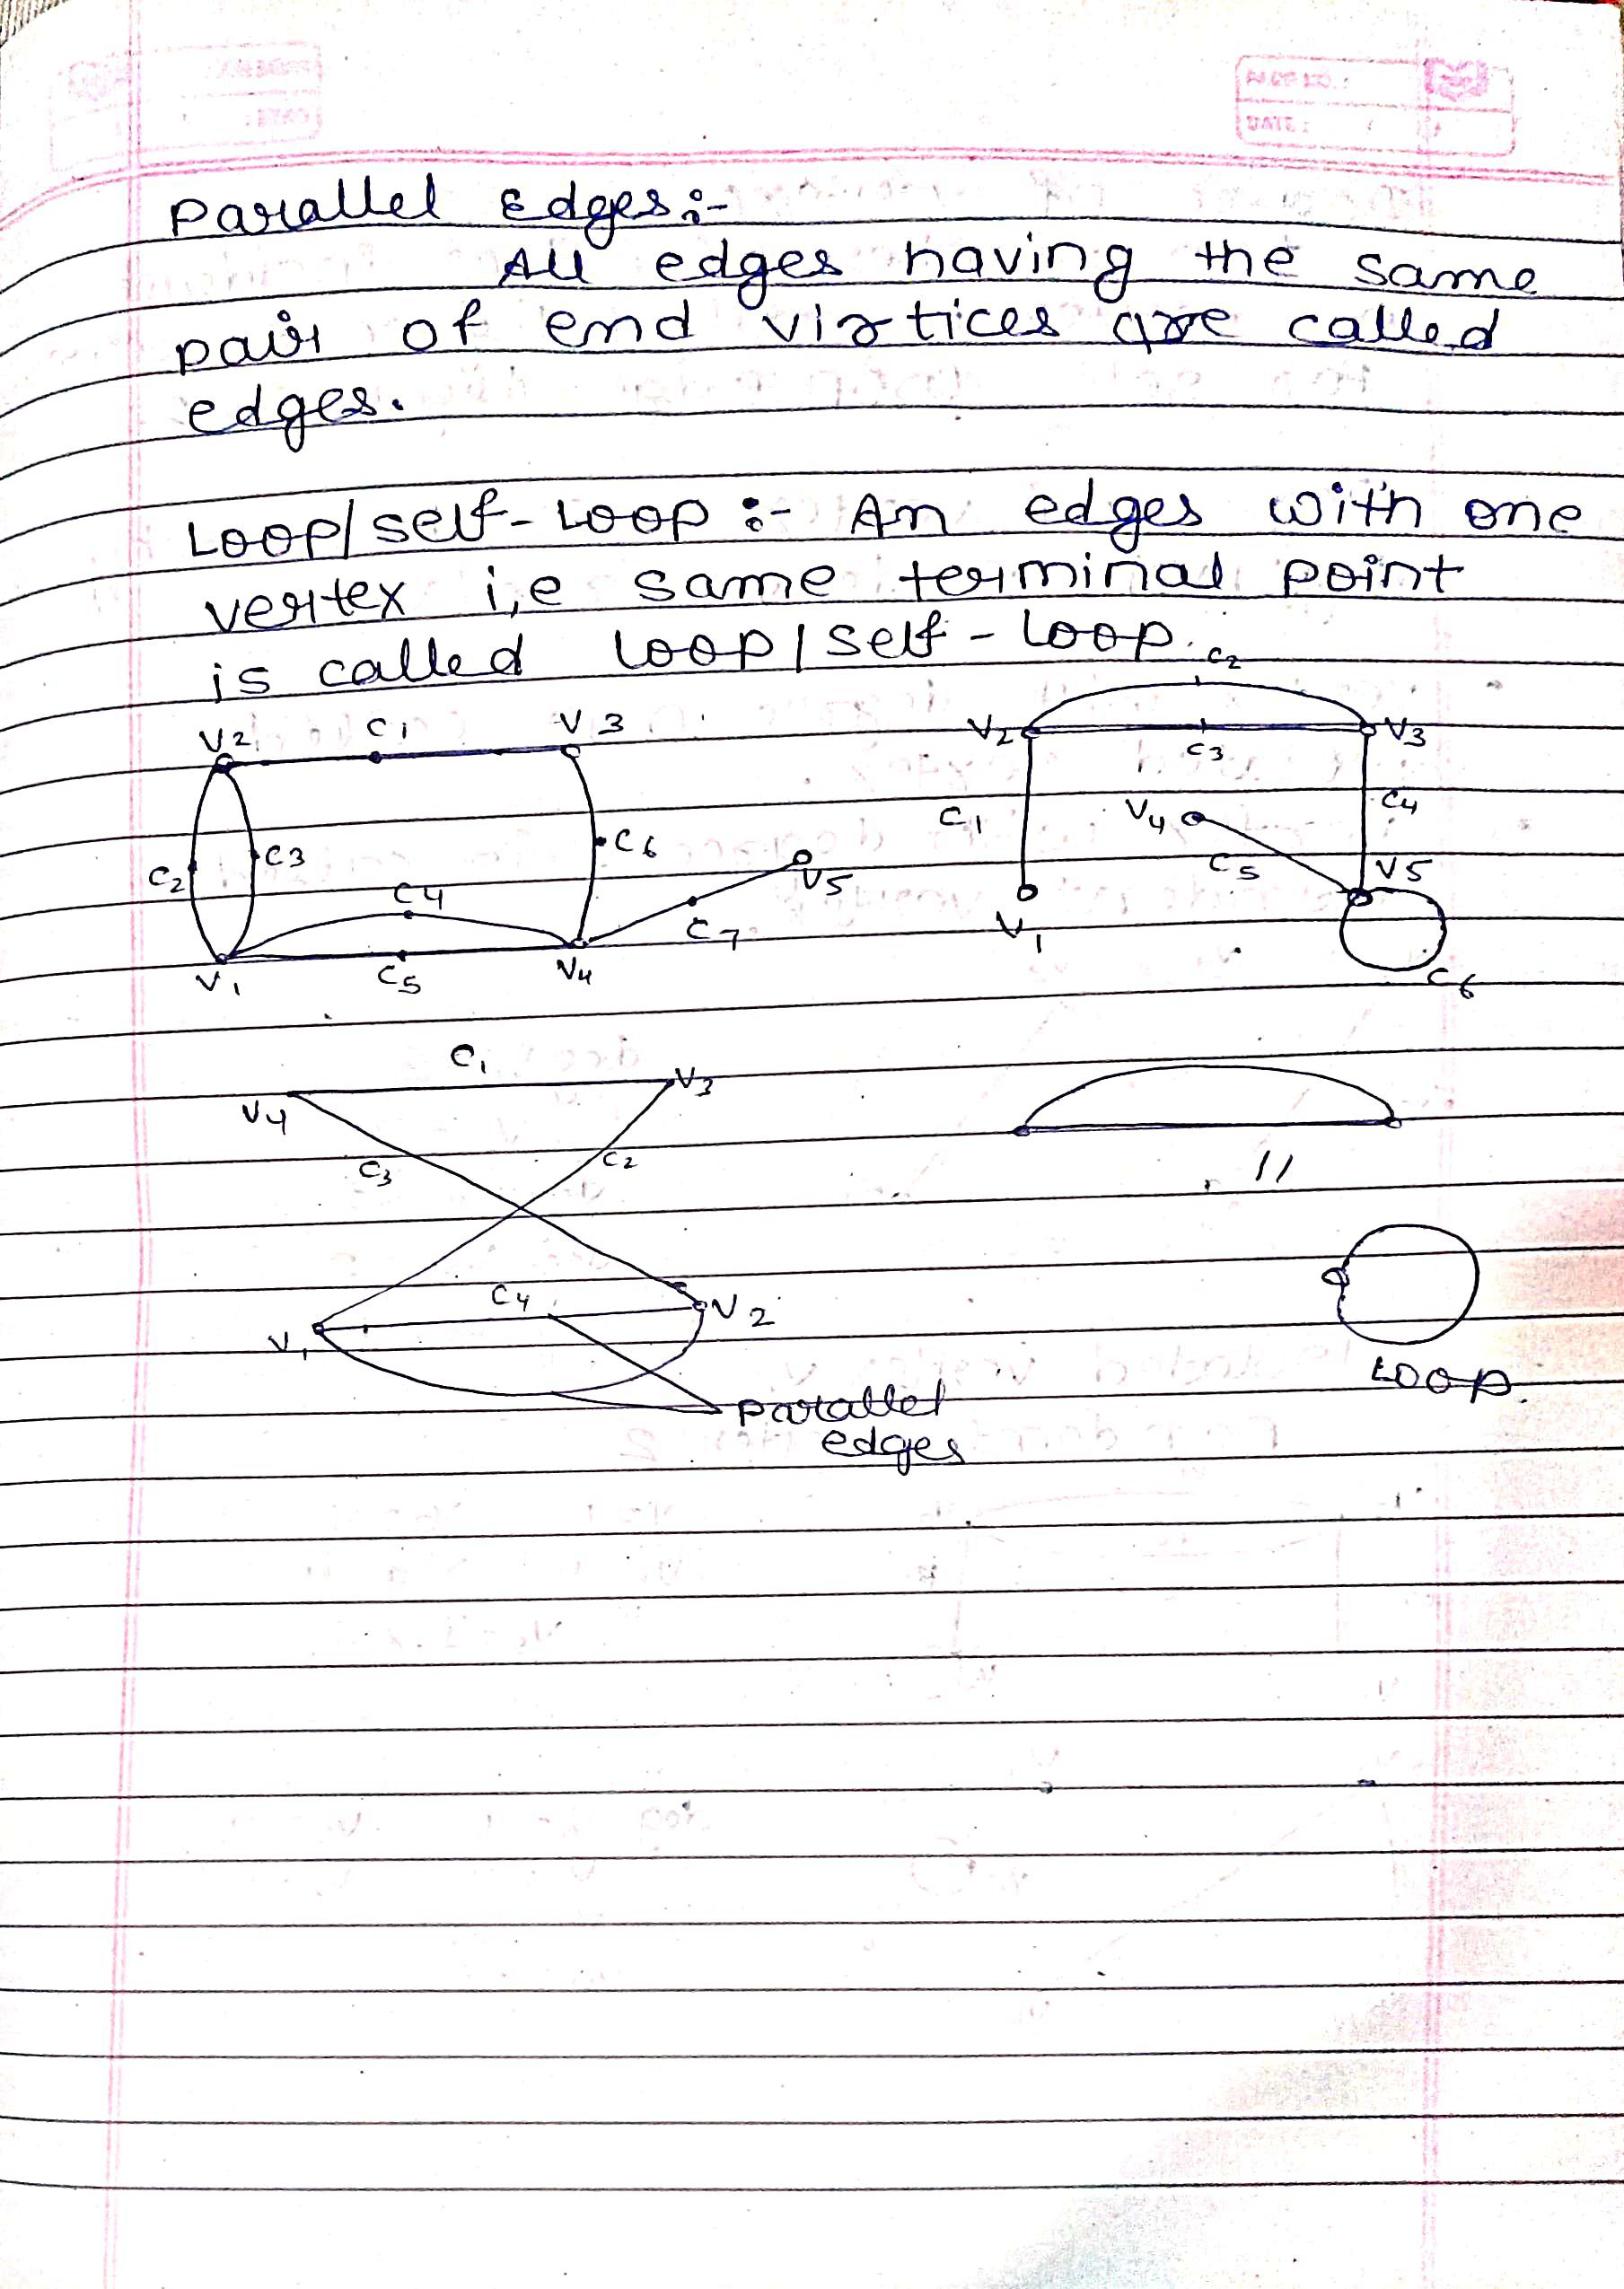 Parallel Edges:-
All edges having the same
pair of end virtices are called
edges.
Loop/self-Loop :- An edges with one
vertex i,e same terminal point
is called loop/self-loop.
V2 C1 V3
C2 C3 C6
C4 V5
C7
V1 C5 V4
C2
V2 V3
C3
C1 V4 C4
C5 V5
V1
C6
C1
V4 V3
C3 C2
C4
V1 V2
parallel
edges
//
LOOP.